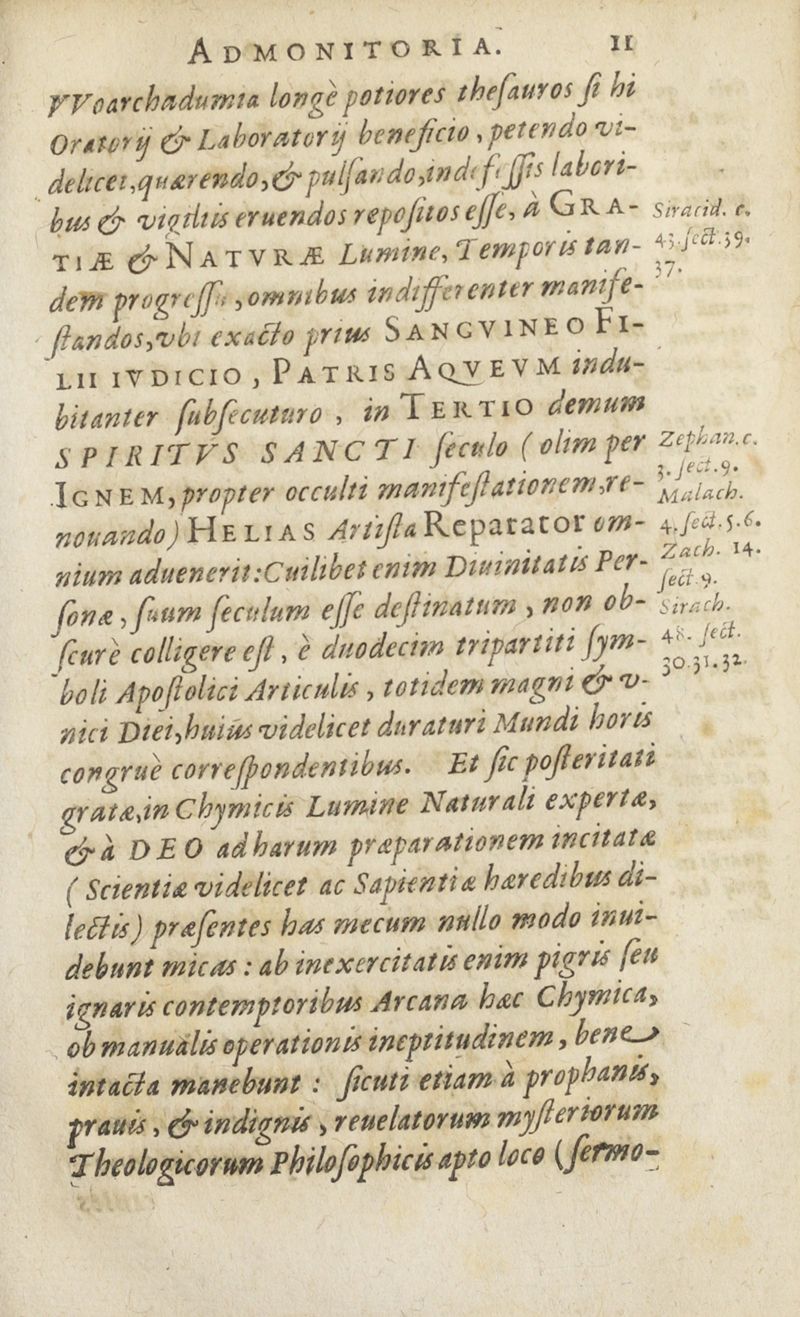 ADMONITORIA. 11
VVoarchadumia longè potiores theſauros ſi hi
Oratorij & Laboratorij beneficio, petendo vi-
delicet, quærendo, & pulſando, indefeſſis labori-
bus & vigiliis eruendos repoſitos eſſe, à GRA-
TIÆ & NATVRÆ Lumine, Temporis tan-
dem progreſſu, omnibus indifferenter manife-
ſtandos, vbi exacto prius SANGVINEO FI-
LII IVDICIO, PATRIS AQVEVM indu-
bitanter ſubſecuturo, in TERTIO demum
SPIRITVS SANCTI ſeculo (olim per
IGNEM, propter occulti manifeſtationem, re-
nouando) HELIAS Artiſta Reparator om-
nium aduenerit: Cuilibet enim Diuinitatis Per-
ſonæ, ſuum ſeculum eſſe deſtinatum, non ob-
ſcurè colligere eſt, è duodecim tripartiti ſym-
boli Apoſtolici Articulis, totidem magni & v-
nici Diei, huius videlicet duraturi Mundi horis
congruè correſpondentibus. Et ſic poſteritati
gratæ, in Chymicis Lumine Naturali expertæ,
& à DEO ad harum præparationem incitatæ
(Scientiæ videlicet ac Sapientiæ hæredibus di-
lectis) præſentes has mecum nullo modo inui-
debunt micas: ab inexercitatis enim pigris ſeu
ignaris contemptoribus Arcana hæc Chymica,
ob manualis operationis ineptitudinem, bene
intacta manebunt: ſicuti etiam à prophanis,
prauis, & indignis, reuelatorum myſteriorum
Theologicorum Philoſophicis apto loco (ſermo-
Siracid. c.
43. ſect. 39.
37.
Zephan. c.
3. ſect. 9.
Malach.
4. ſect. 5. 6.
Zach. 14.
ſect. 9.
Sirach.
48. ſect.
30. 31. 32.